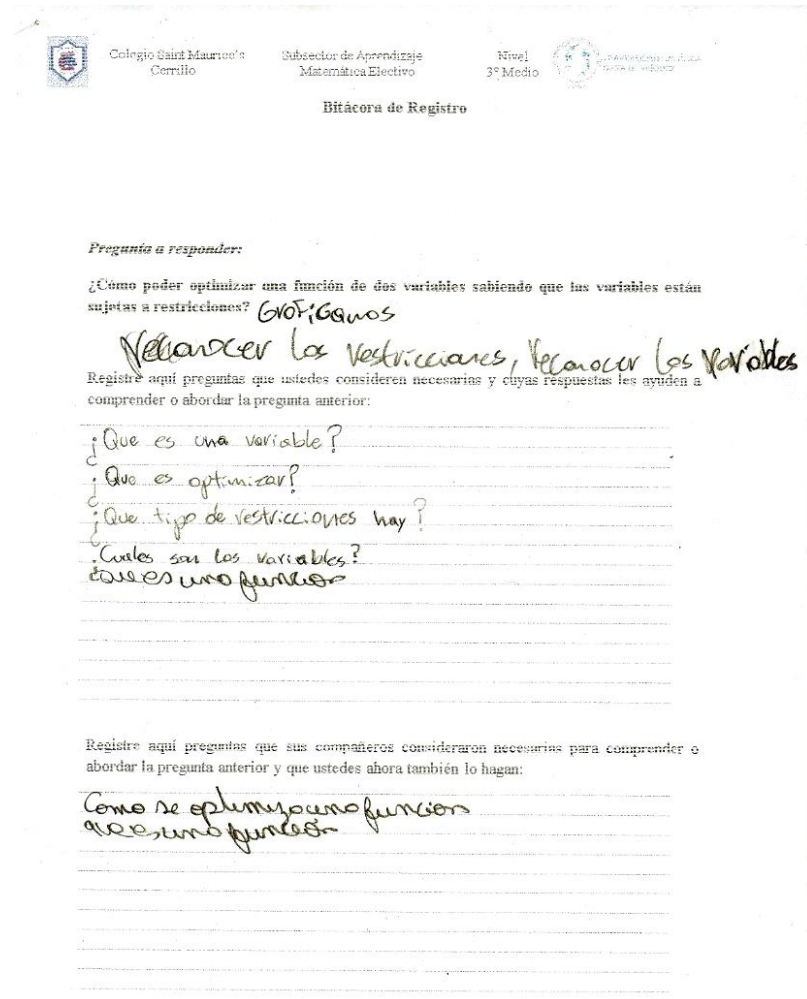 Colegio Saint Maurice's
Cerrillo
Subsector de Aprendizaje
Matemática Electivo
Nivel
3º Medio
Bitácora de Registro
Pregunta a responder:
¿Cómo poder optimizar una función de dos variables sabiendo que las variables están
sujetas a restricciones? Grafiquemos
Reconocer las restricciones, reconocer las variables
Registre aquí preguntas que ustedes consideren necesarias y cuyas respuestas les ayuden a
comprender o abordar la pregunta anterior:
¿Que es una variable?
¿Que es optimizar?
¿Que tipo de restricciones hay?
¿Cuales son las variables?
¿que es una funcion
Registre aquí preguntas que sus compañeros consideraron necesarias para comprender o
abordar la pregunta anterior y que ustedes ahora también lo hagan:
Como se optimiza una funcion
que es una función